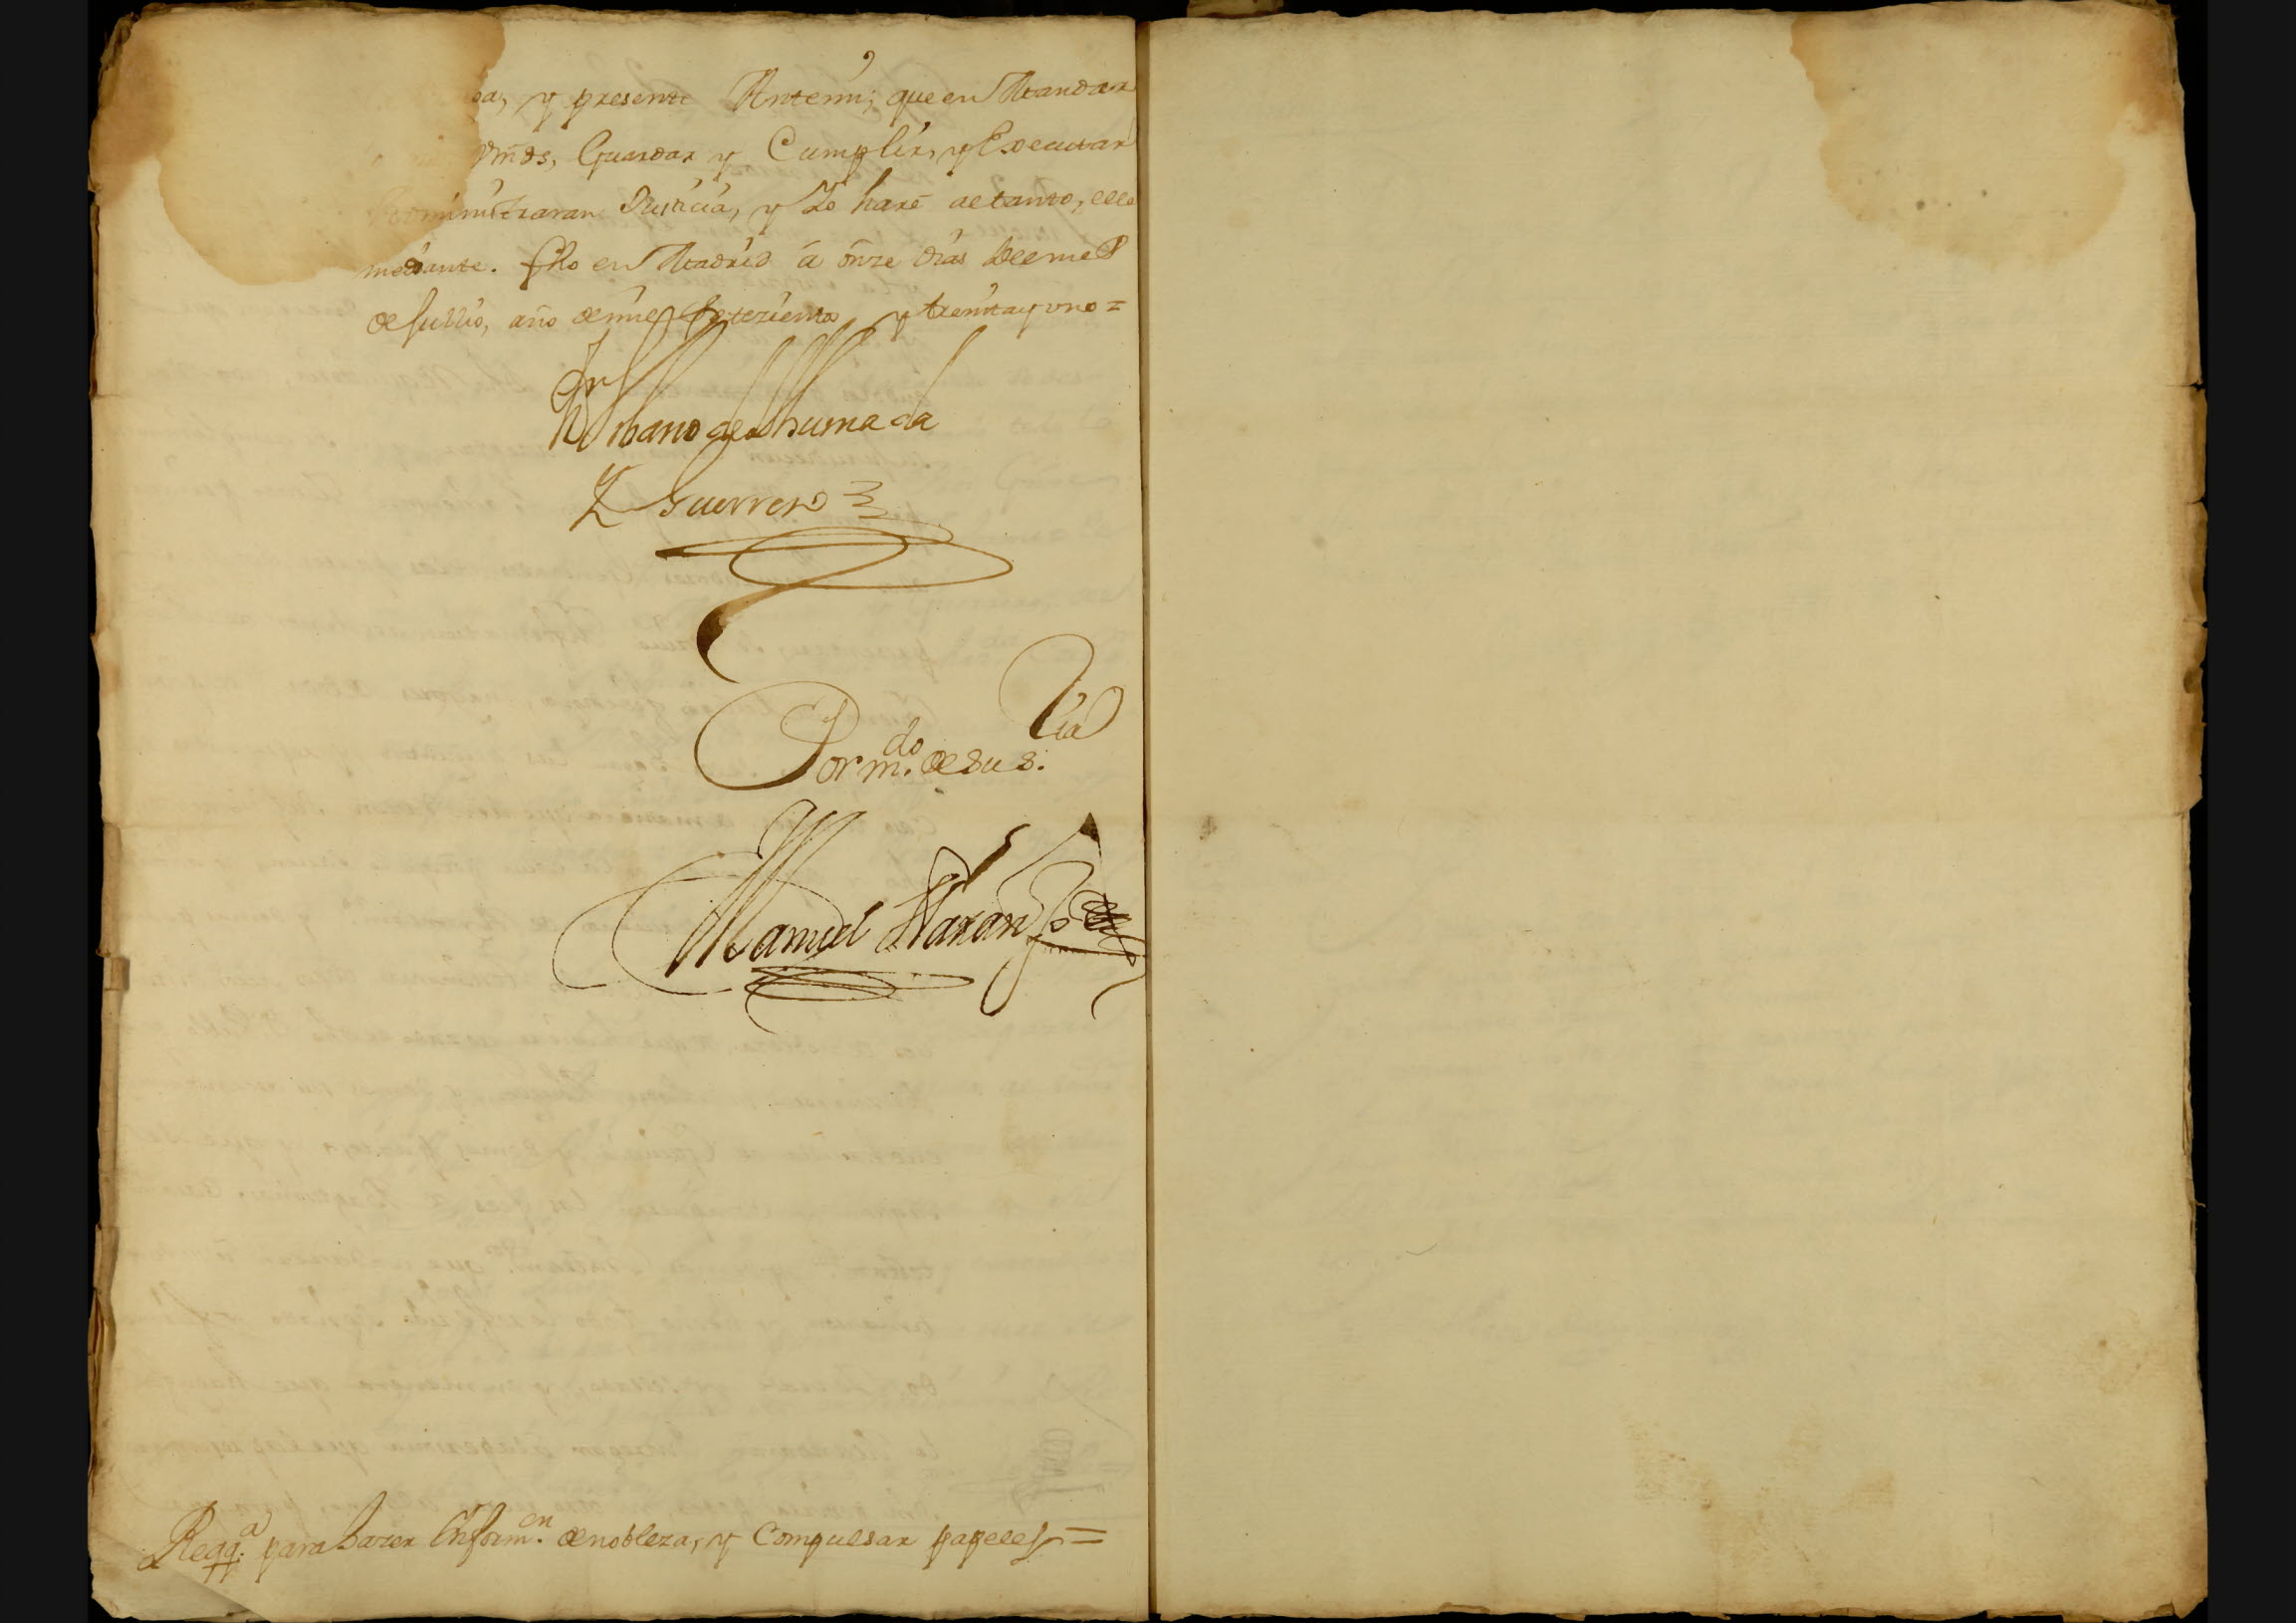 da, y presente Antemi; que en Mandar
Vmds, Guardar y Cumplir, y Executar
Administraran Justicia, y Yo haré al tanto, ella
mediante. fho en Madrid á onze dias del mes
de Jullio, año de mil setezientos y treinta y uno =
Urbano de Ahumada
Y Guerrero
Por m.do de su s.ria
Manuel Naranjo
Reqq.a para hazer Inform.en de nobleza, y Compulsar papeles =